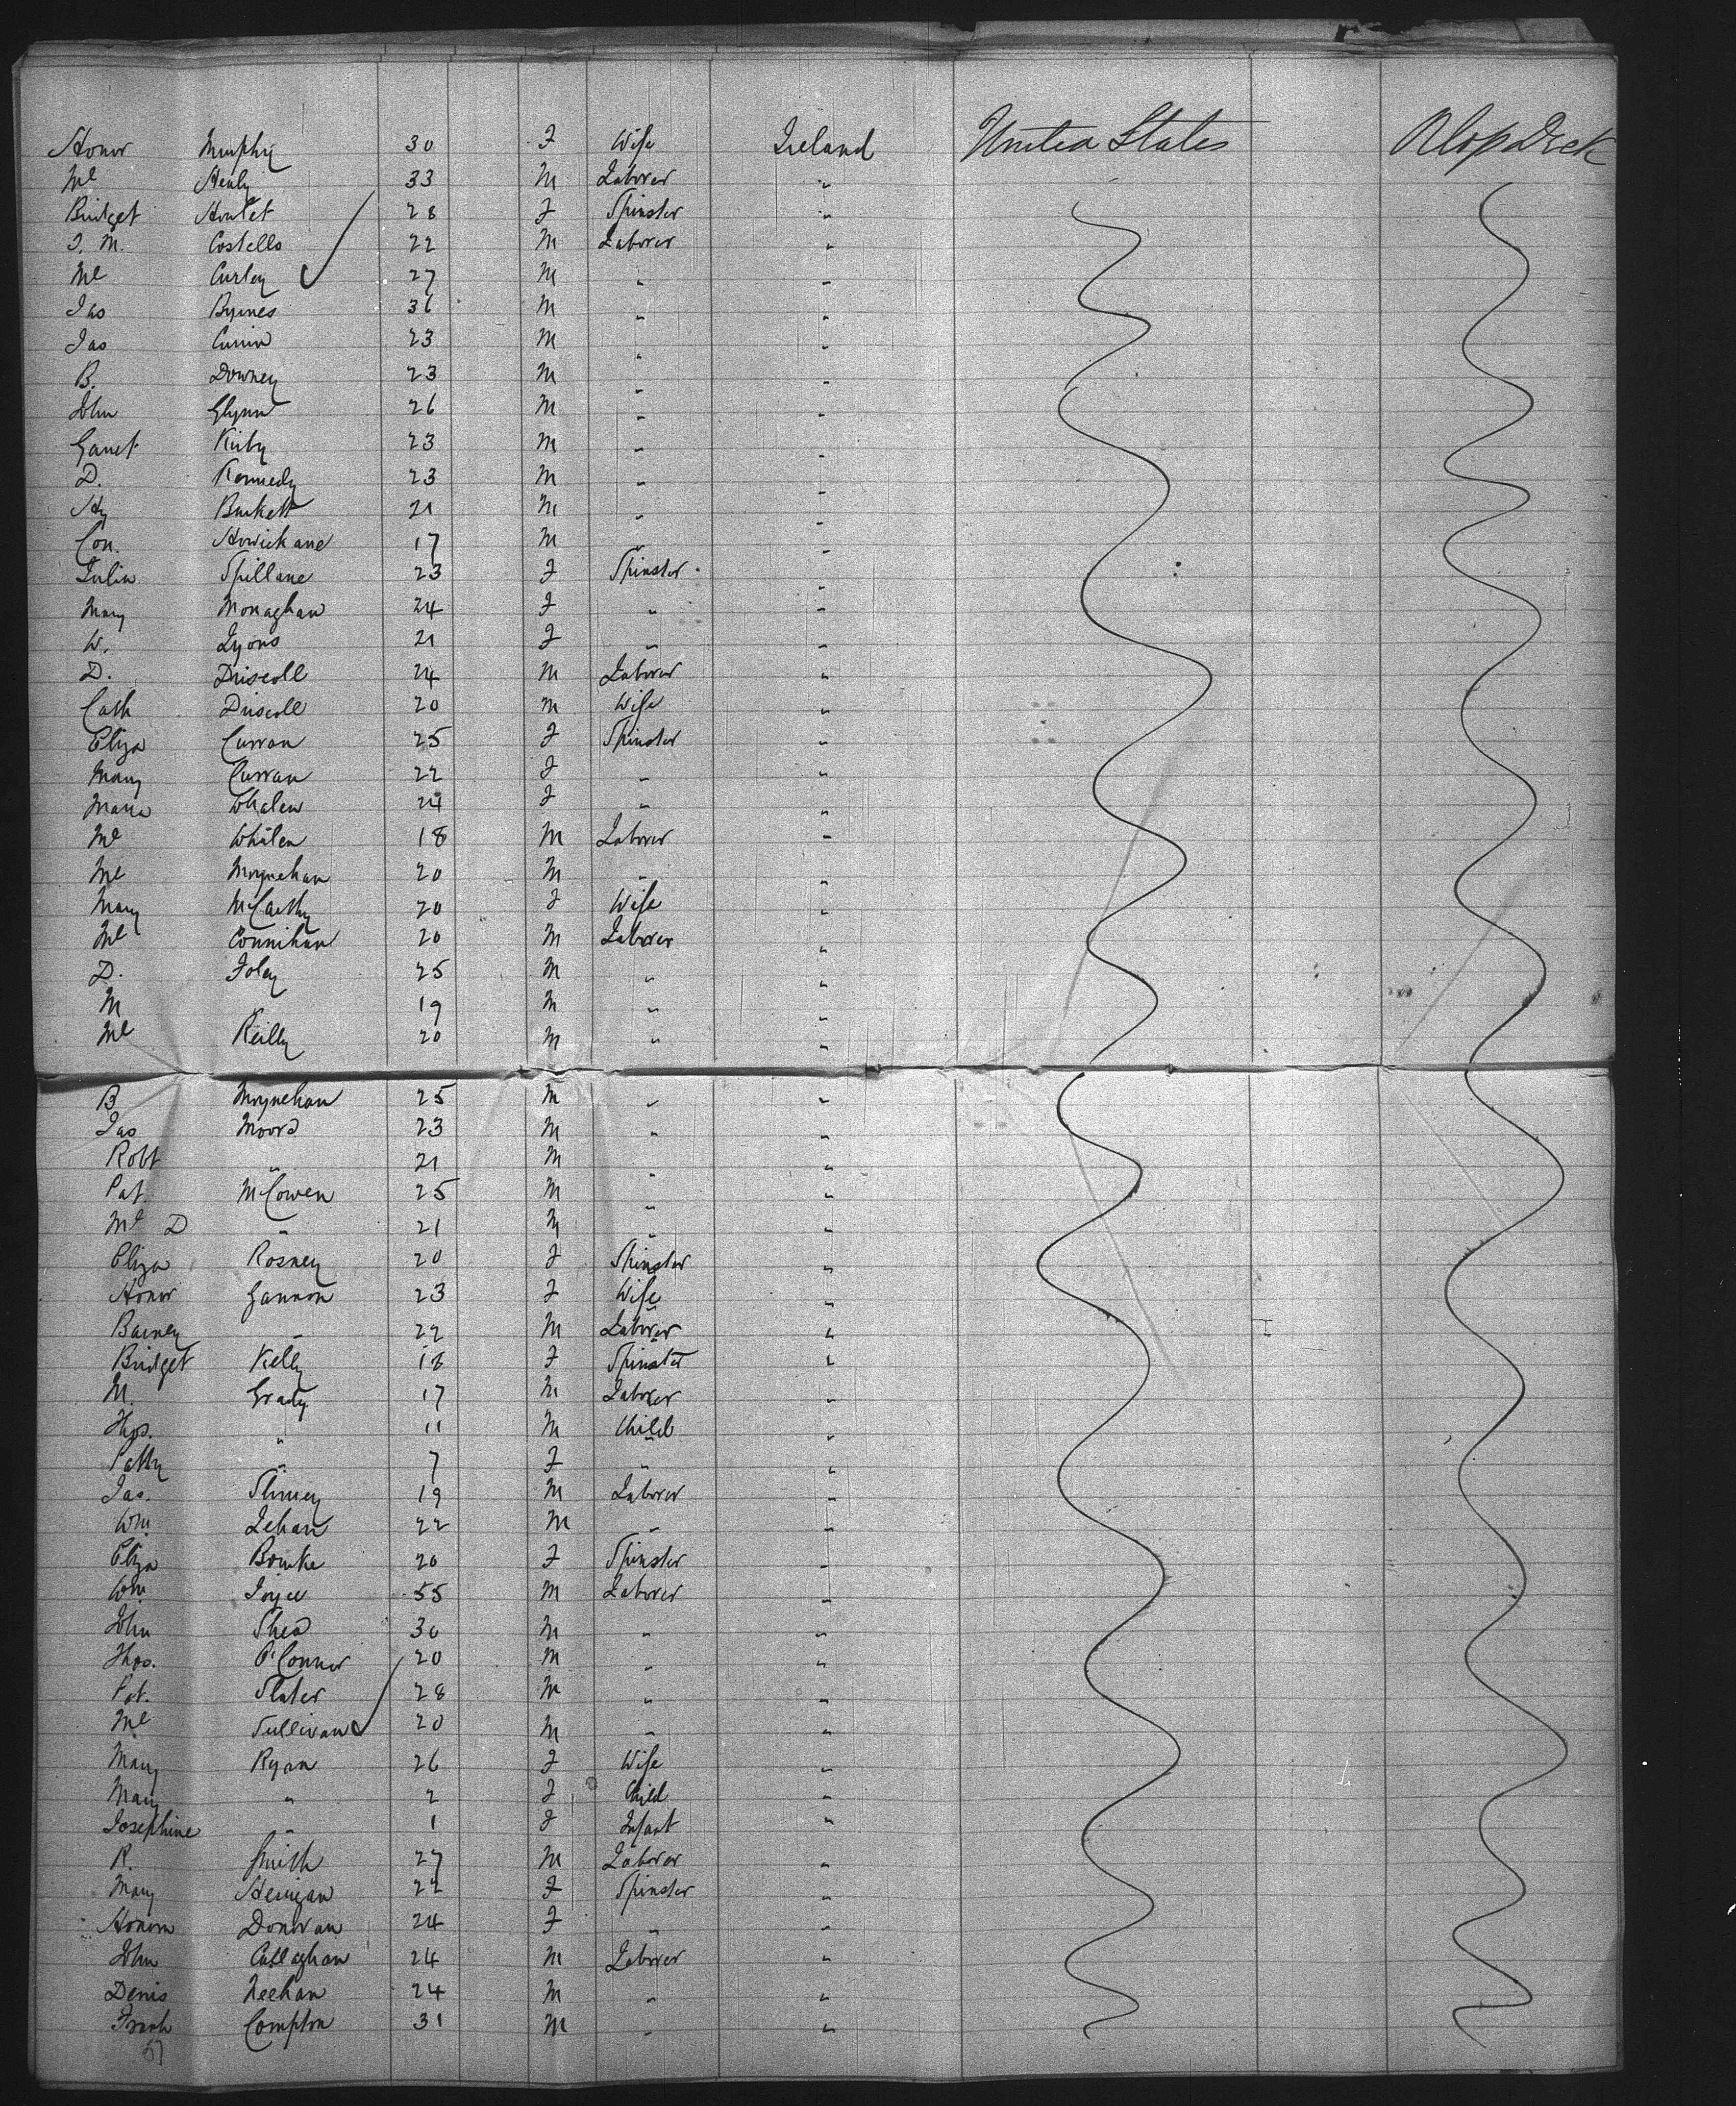 Honor Murphy 30 F Wife Ireland United States Orlop Deck
Ml Healy 33 M Laborer "
Bridget Howlet 28 F Spinster "
J. M. Costello 22 M Laborer "
Ml Curley 27 M " "
Jas Byrnes 36 M " "
Jas Currin 23 M " "
B. Downey 23 M " "
John Glynn 26 M " "
Garret Kirby 23 M " "
D. Kennedy 23 M " "
Hy Burkett 21 M " "
Con. Howickane 17 M " "
Julia Spillane 23 F Spinster "
Mary Monaghan 24 F " "
W. Lyons 21 F " "
D. Driscoll 24 M Laborer "
Cath Driscoll 20 M Wife "
Eliza Curran 25 F Spinster "
Mary Curran 22 F " "
Maria Whalen 24 F " "
Ml Whalen 18 M Laborer "
Ml Moynehan 20 M " "
Mary McCarthy 20 F Wife "
Ml Connihan 20 M Laborer "
D. Foley 25 M " "
M 19 M " "
Ml Reilly 20 M " "
B Moynehan 25 M " "
Jas Moore 23 M " "
Robt " 21 M " "
Pat. McCowen 25 M " "
Ml D " 21 M " "
Eliza Rosney 20 F Spinster "
Honor Gannon 23 F Wife "
Barney " 22 M Laborer "
Bridget Kelly 18 F Spinster "
M. Grady 17 M Laborer "
Thos. " 11 M Child "
Patty " 7 F " "
Jas. Slimey 19 M Laborer "
Wm Lehan 22 M " "
Eliza Bourke 20 F Spinster "
Wm Joyce 55 M Laborer "
John Shea 30 M " "
Thos. O'Connor 20 M " "
Pat. Slater 28 M " "
Ml Sullivan 20 M " "
Mary Ryan 26 F Wife "
Mary " 2 F Child "
Josephine " 1 F Infant "
R. Smith 27 M Laborer "
Mary Herrigan 22 F Spinster "
Honora Donovan 24 F " "
John Callaghan 24 M Laborer "
Denis Neehan 24 M " "
Frank Compton 31 M " "
57